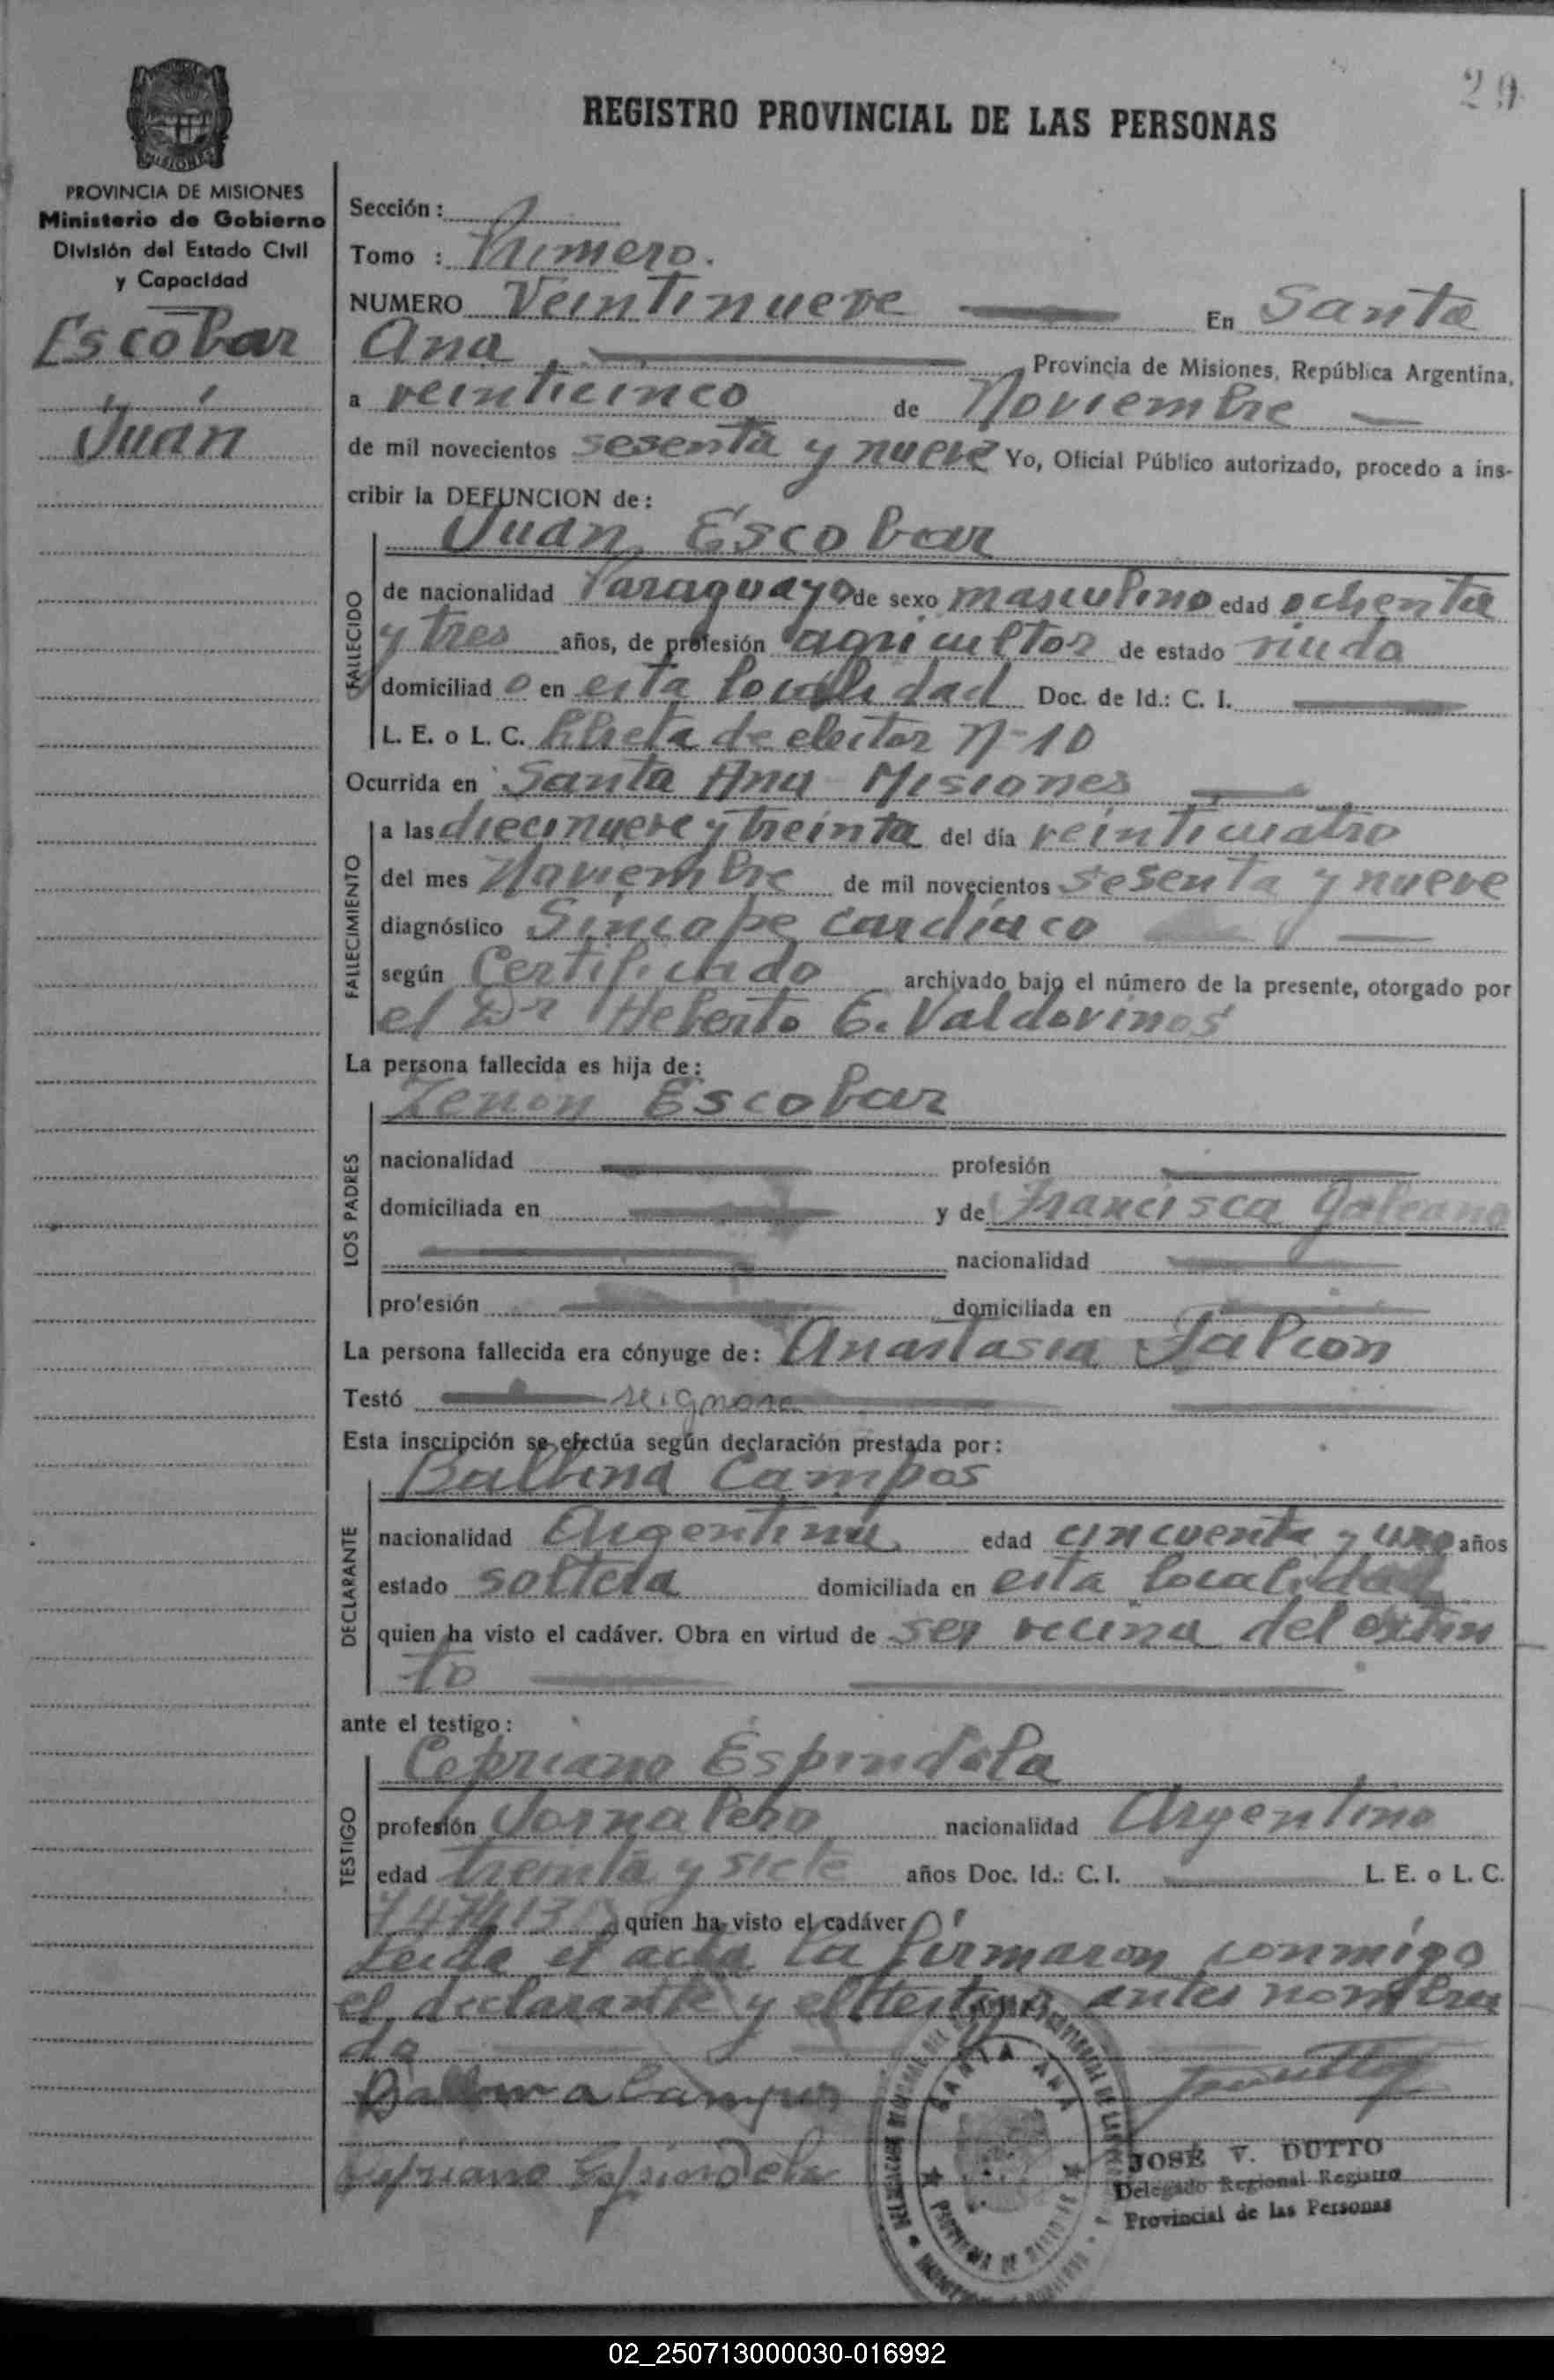 29
REGISTRO PROVINCIAL DE LAS PERSONAS
PROVINCIA DE MISIONES
Ministerio de Gobierno
División del Estado Civil
y Capacidad
Escobar
Juán
Sección :
Tomo : Primero.
NUMERO Veintinueve En Santa
Ana Provincia de Misiones, República Argentina,
a veinticinco de Noviembre
de mil novecientos sesenta y nueve Yo, Oficial Público autorizado, procedo a ins-
cribir la DEFUNCION de :
Juan Escobar
FALLECIDO
de nacionalidad Paraguayo de sexo masculino edad ochenta
y tres años, de profesión agricultor de estado viudo
domiciliad o en esta localidad Doc. de Id.: C. I.
L. E. o L. C. de elector Nº 10
Ocurrida en Santa Ana Misiones
FALLECIMIENTO
a las diecinueve y treinta del día veinticuatro
del mes Noviembre de mil novecientos sesenta y nueve
diagnóstico Síncope cardíaco
según Certificado archivado bajo el número de la presente, otorgado por
el Dr Heberto E. Valdovinos
La persona fallecida es hija de :
Zenon Escobar
LOS PADRES
nacionalidad profesión
domiciliada en y de Francisca Galeano
nacionalidad
profesión domiciliada en
La persona fallecida era cónyuge de : Anastasia
Testó se ignora
Esta inscripción se efectúa según declaración prestada por :
Balbina Campos
DECLARANTE
nacionalidad Argentina edad cincuenta y uno años
estado soltera domiciliada en esta localidad
quien ha visto el cadáver. Obra en virtud de ser vecina del extin
to
ante el testigo :
Cepriano Espindola
TESTIGO
profesión Jornalero nacionalidad Argentino
edad treinta y siete años Doc. Id.: C. I. L. E. o L. C.
quien ha visto el cadáver
Leida el acta la firmaron conmigo
el declarante y el testigo antes nombra
do
Balbina Campos
Cepriano Espindola
SANTA ANA
PROVINCIA DE MISIONES
JOSÉ V. DUTTO
Delegado Regional Registro
Provincial de las Personas
02_250713000030-016992